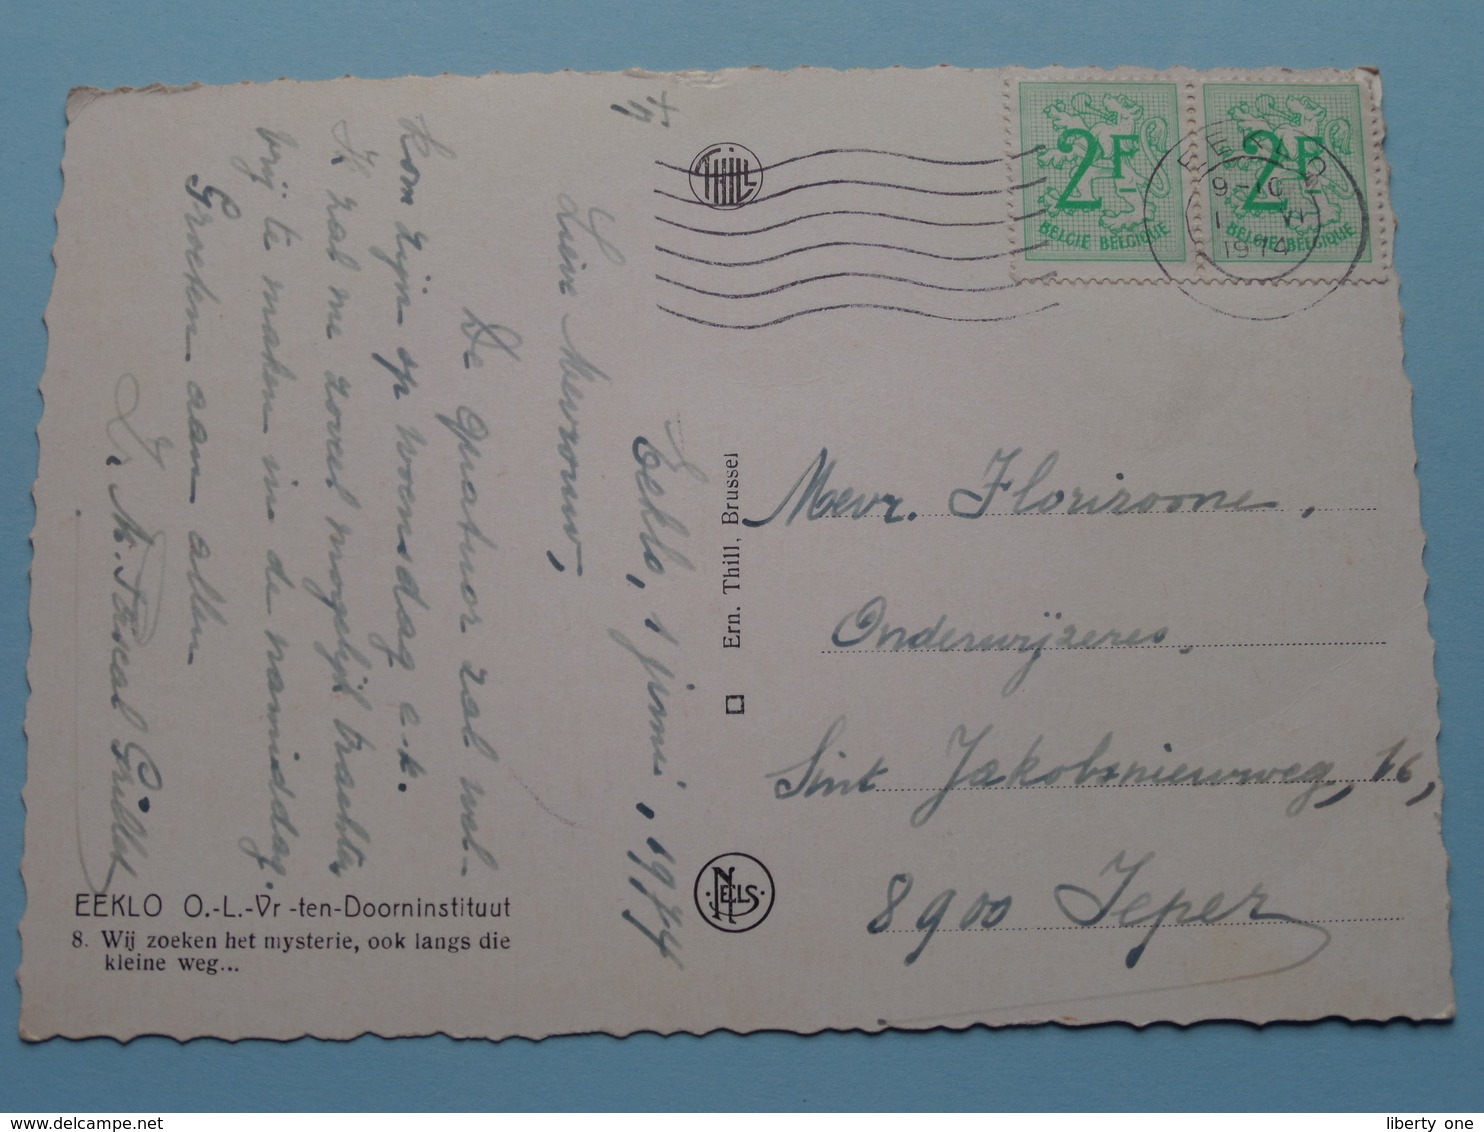 Eeklo, 1 juni, 1974
Lieve Mevrouw,
De quatuor zal wel-
kom zijn op woensdag e.k.
Ik zal me zoveel mogelijk trachten
vrij te maken in de namiddag.
Groeten aan allen
Z. M. Pascal Grillet
EEKLO O.-L.-Vr-ten-Doorninstituut
8. Wij zoeken het mysterie, ook langs die
kleine weg...
THILL
Ern. Thill, Brussel
NELS
2F
BELGIE BELGIQUE
2F
BELGIE BELGIQUE
EEKLO
9-10
1 VI
1974
Mevr. Florizoone,
Onderwijzeres,
Sint Jakobsnieuwweg, 66,
8900 Ieper
liberty one